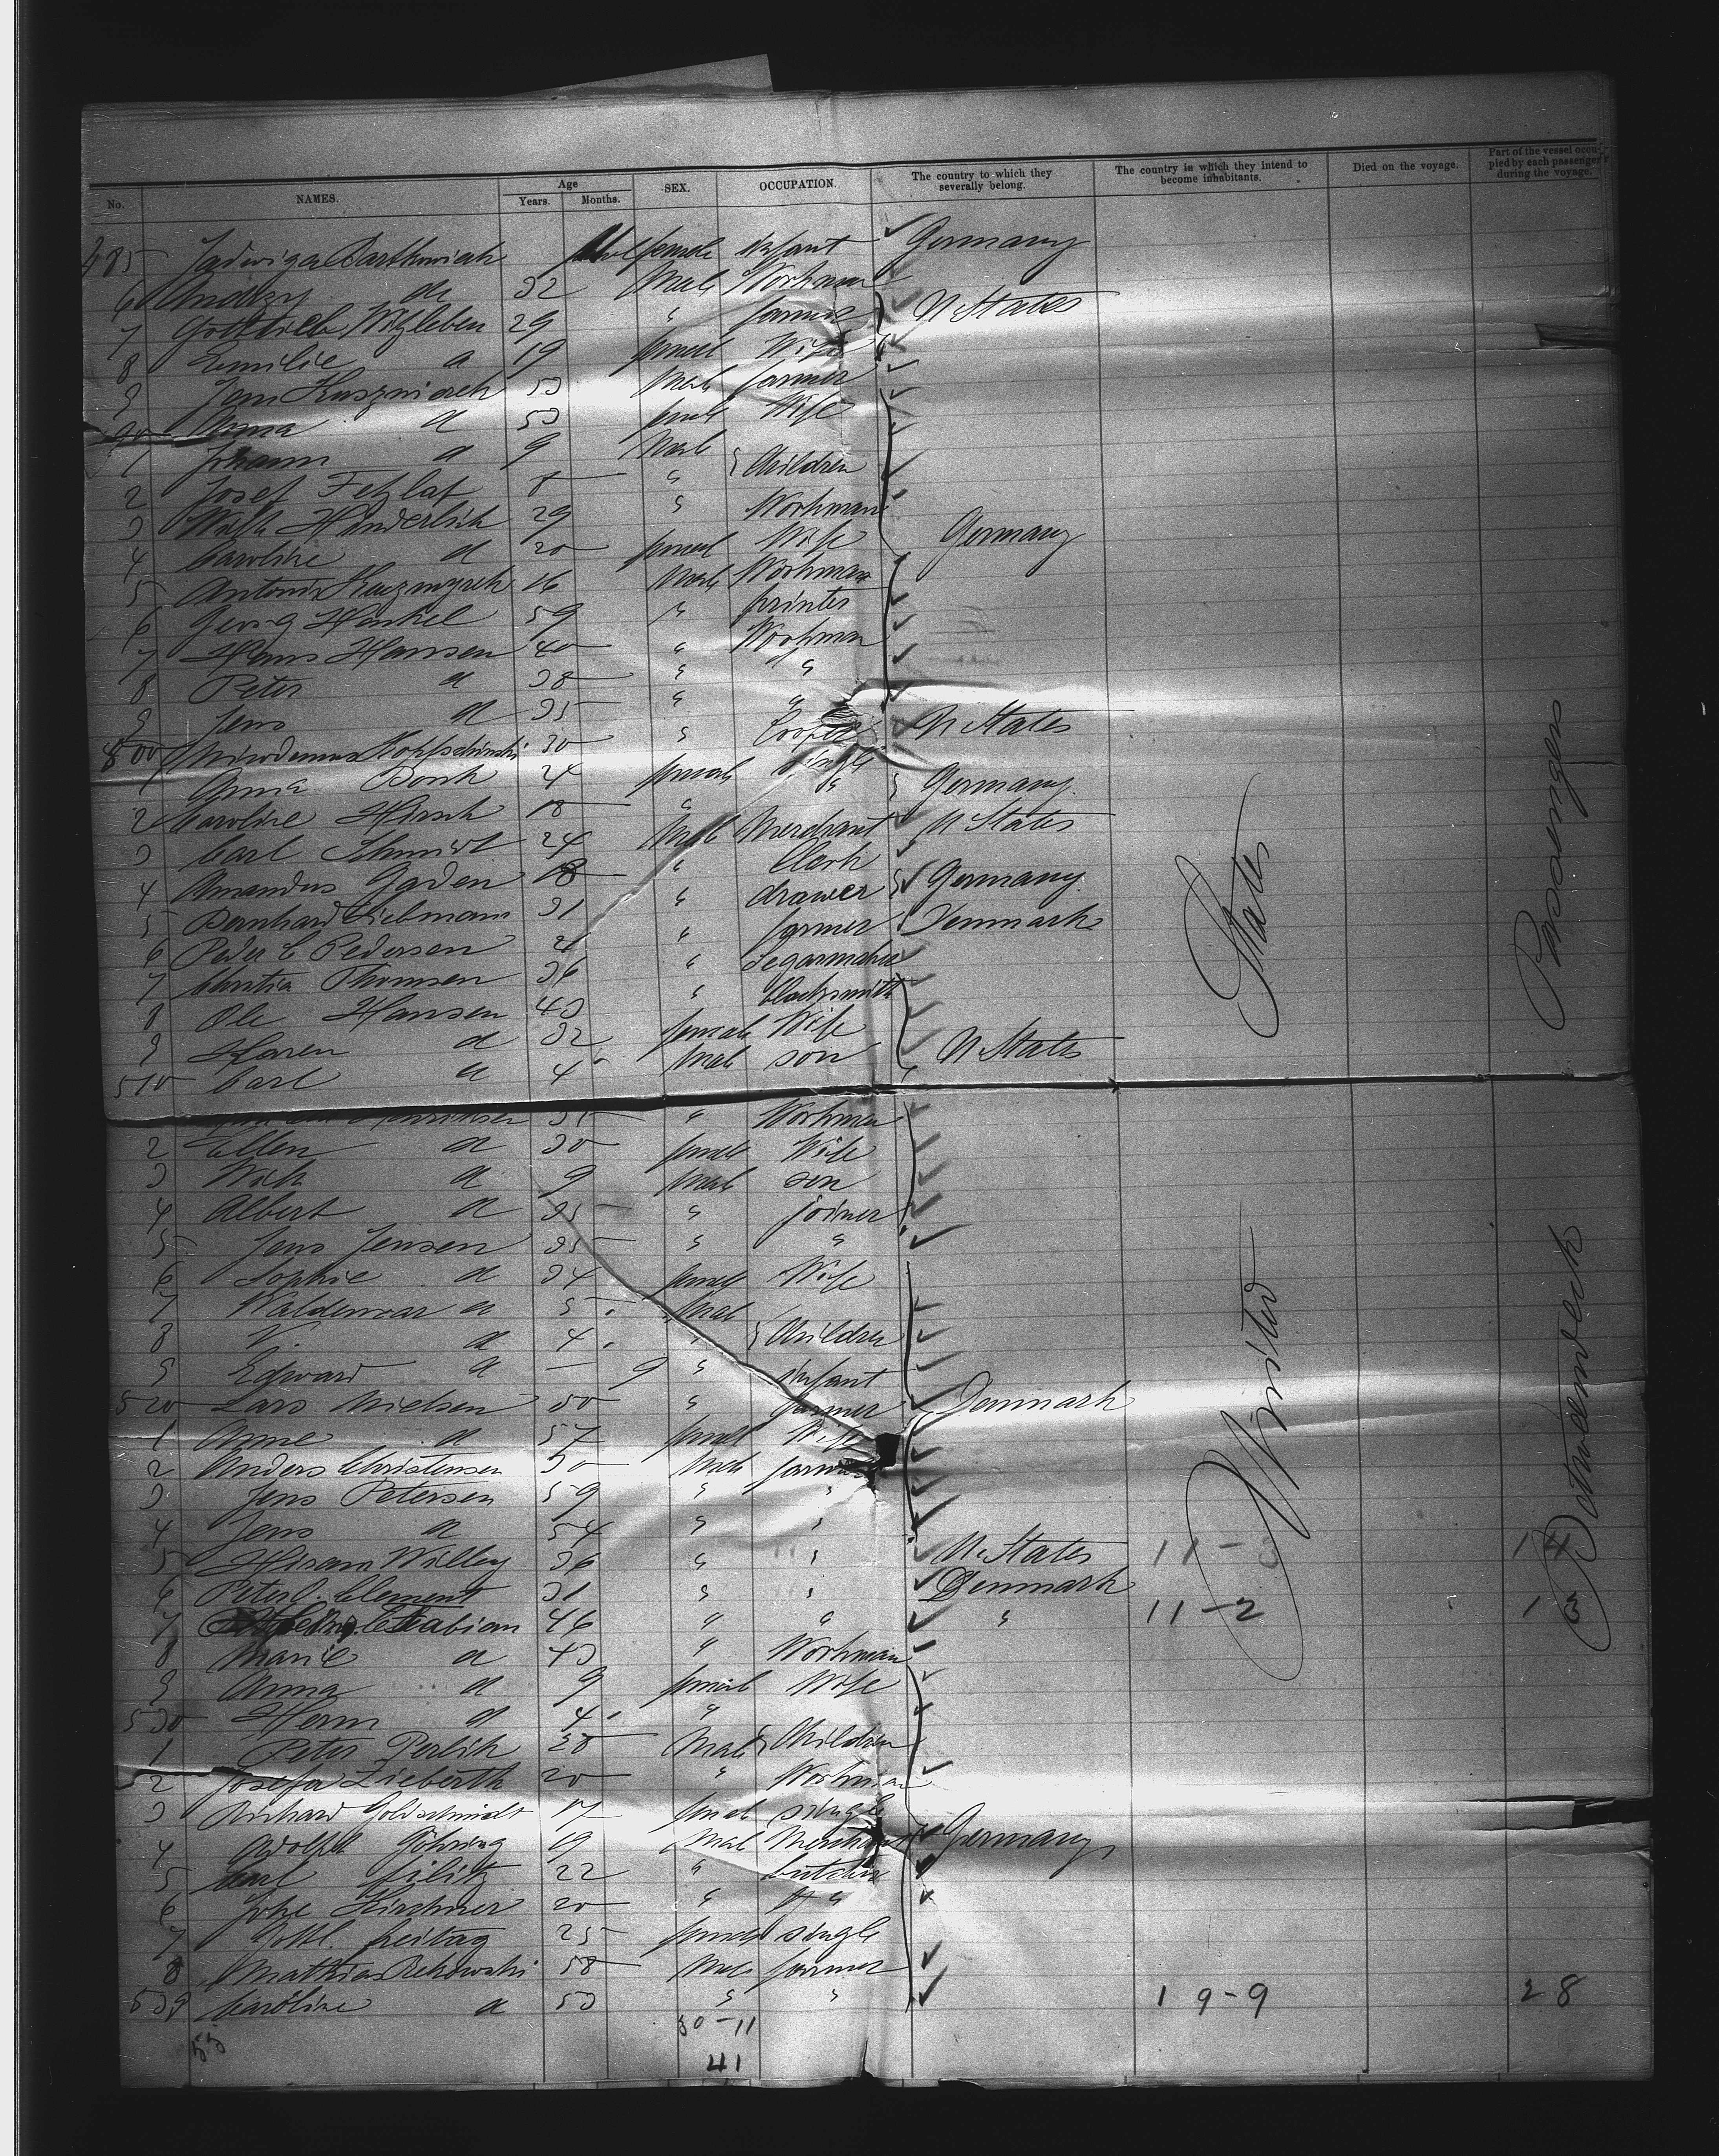 No. NAMES. Age Years. Months. SEX. OCCUPATION. The country to which they severally belong. The country in which they intend to become inhabitants. Died on the voyage. Part of the vessel occupied by each passenger during the voyage.
485 Jadwiga Bartkowiak female infant Germany
6 Andrzy do 32 Male Workman
7 Gottlieb Witzleben 29 " farmer U States
8 Emilie d 19 femal Wife
9 Jan Kuszniarek 53 Male farmer
90 Anna d 53 femal Wife
1 Johann d 9 Male
2 Josef Fetzlaf 8 " Children
3 Wilh Hinderlich 29 " Workman
4 Caroline d 20 femal Wife Germany
5 Antonin 16 Male Workman
6 Georg Henkel 59 " printer
7 Hans Hansen 40 " Workman
8 Peter d 38 " d "
9 Jens d 35 " "
500 30 " Cooper U States
1 Anna Bonk 24 female single
2 Caroline Hirsch 18 " " Germany
3 Carl Schmidt 24 Male Merchant U States
4 Amandus Ggden 18 " Clerk
5 Bernhard Liebmann 31 " drawer Germany
6 Peder C Pedersen 21 " farmer Denmark
7 Christia Thomsen 36 " Segarmaker
8 Ole Hansen 43 " blacksmith
9 Karen d 32 female Wife
510 Carl d 4 Male son U States
35 " Workman
2 Ellen d 30 female Wife
3 Wilh d 9 Male son
4 Albert d 35 " joiner
5 Jens Jensen 35 " "
6 Sophie d 34 female Wife
7 Waldemar d 5 Male
8 V. d 4 " Children
9 Edward d — 9 " infant
520 Lars Nielsen 50 " farmer Denmark
1 Anne d 57 femal Wife
2 Anders Christensen 50 Male farmer
3 Jens Petersen 59 " "
4 Jens d 54 " "
5 Hiram Willey 36 " " U. States 11-3 14
6 Peter C. Clement 31 " " Denmark
7 46 " " " 11-2 13
8 Marie d 43 " Workman
9 Anna d 9 female Wife
530 Herm d 4 "
1 Peter Perlik 28 Male Children
2 Josefa Lieberth 20 " Workman
3 Richard Goldschmidt 17 femal single
4 Adolph Göhring 19 Male Merchant Germany
5 Carl filitz 22 " butcher
6 Johe Kirchner 20 " "
7 Gottl. freitag 25 female single
8 Mathias Rekowski 58 Male farmer
539 Caroline d 53 " " 19-9 28
30-11
53
41
United States
Betweendeck Passengers